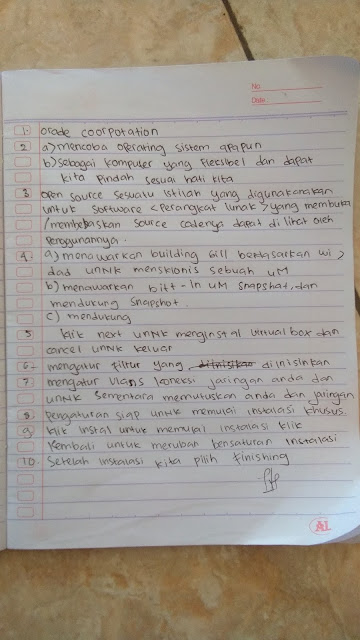 No.
Date.
1. orade coorpotation
2. a) mencoba operating sistem apapun
b) sebagai komputer yang fleksibel dan dapat
kita pindah sesuai hati kita
3 open source sesuatu istilah yang digunakanakan
untuk software <perangkat lunak> yang membuka
/membebaskan source codenya dapat di lihat oleh
penggunannya.
4. a) menawarkan building bill berdasarkan wi >
dad unNk menskionis sebuah uM
b) menawarkan bitt-in uM snapshat, dan
mendukung snapshot.
c) mendukung
5 klik next untuk menginstal virtual box dan
cancel unNk keluar
6- mengatur fiktur yang diinislnkan
7 mengatur vlans koneksi jaringan anda dan
unNk sementara memutuskan anda dan jaringan
8 pengaturan siap untuk memulai instalasi khusus.
9 klik instal untuk memulai instalasi klik
kembali untuk merubah bensaturan instalasi
10. Setelah instalasi kita pilih finishing
A1